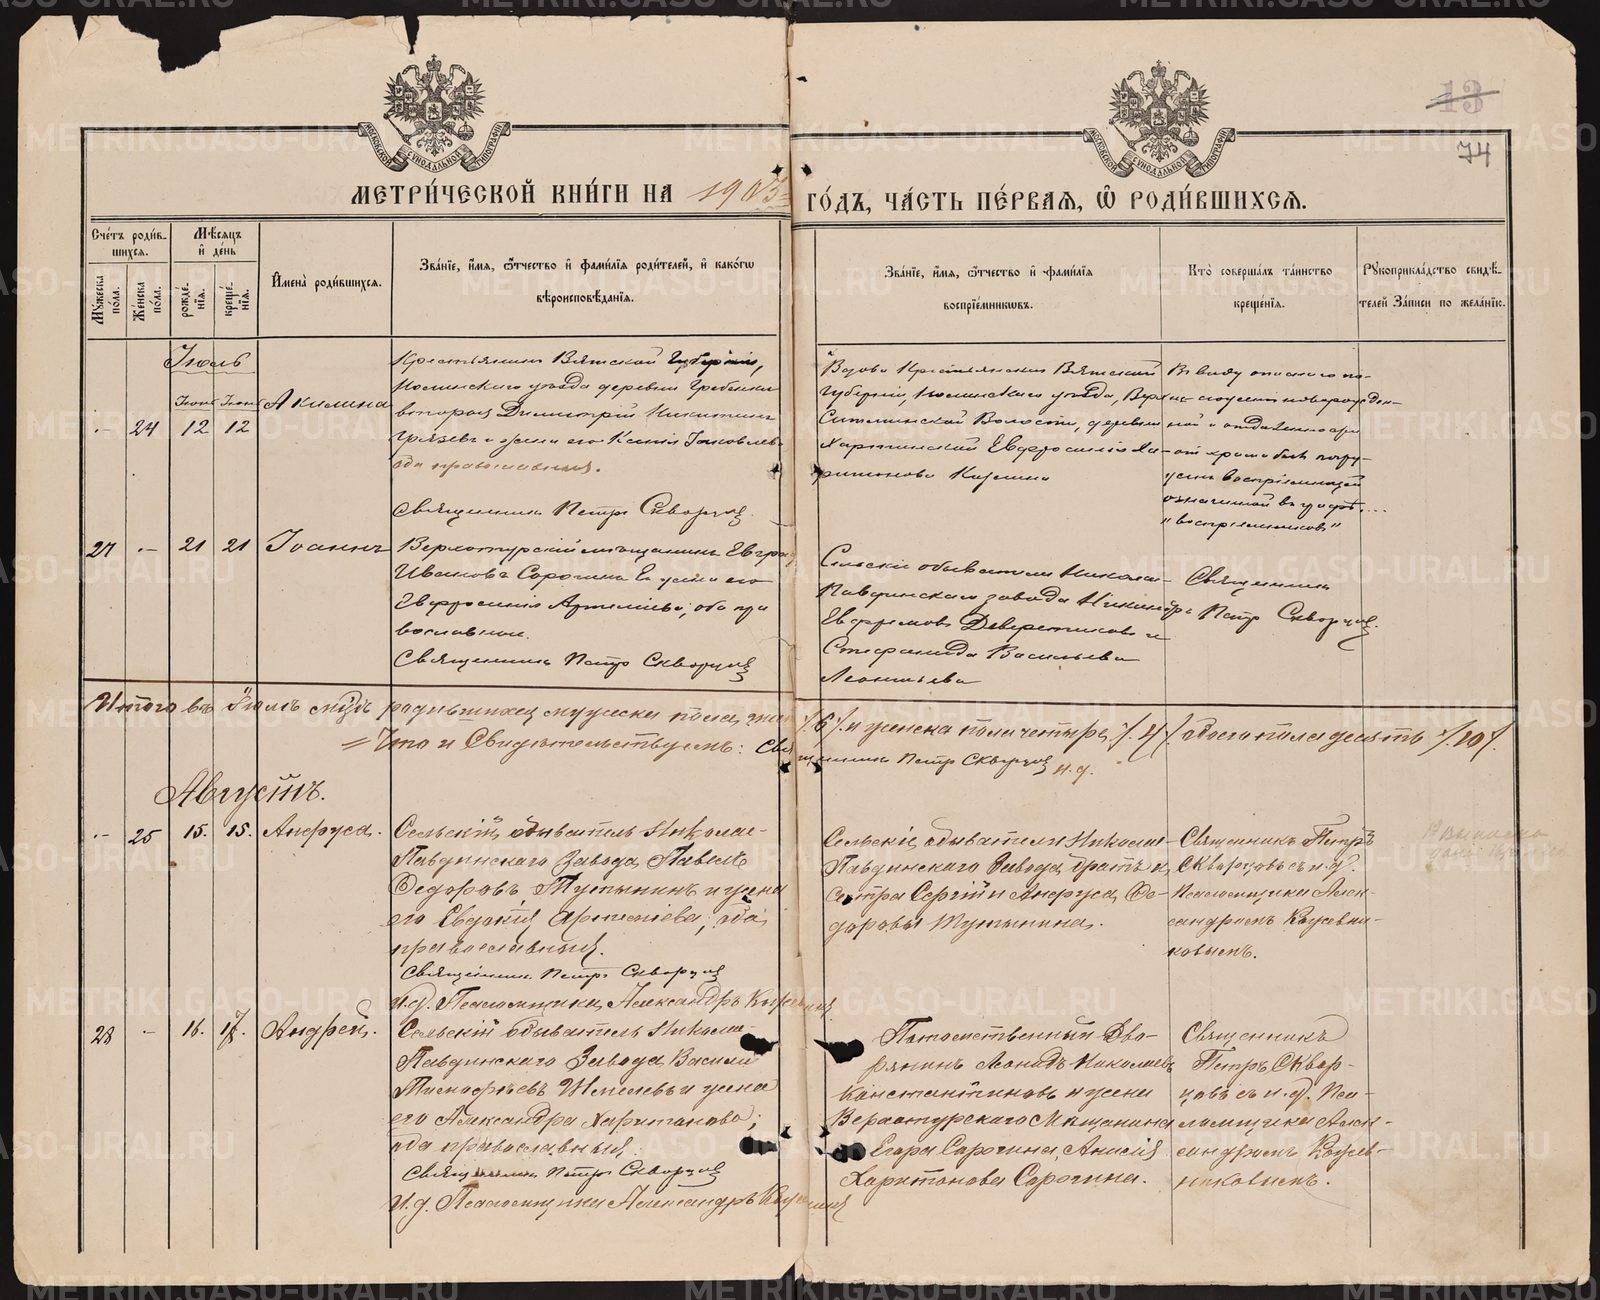 METRIKI.GASO-URAL.RU
13
74
МОСКОВСКОЙ СУНОДАЛЬНОЙ ТИПОГРАФІИ
МОСКОВСКОЙ СУНОДАЛЬНОЙ ТИПОГРАФІИ
МЕТРИ́ЧЕСКОЙ КНИ́ГИ НА 1903 ГО́ДЪ, ЧА́СТЬ ПЕ́РВАЯ, Ѽ РОДИ́ВШИХСЯ.
Сче́тъ роди́в-
шихся.
Мѣ́сяцъ
и҆ де́нь
Мꙋ́жеска
по́ла.
Же́нска
по́ла.
рожде́-
нїѧ.
креще́-
нїѧ.
И҆мена̀ роди́вшихся.
Зва́нїе, и҆́мя, ѻ҆́тчество и҆ фами́лїя роди́телей, и҆ како́гѡ
вѣроисповѣ́данїя.
Зва́нїе, и҆́мя, ѻ҆́тчество и҆ фами́лїя
воспрїе́мникѡвъ.
Кто̀ соверша́лъ та́инство
креще́нїя.
Рꙋкоприкла́дство свидѣ́-
телей за́писи по жела́нїю.
Іюль
Іюнь Іюнь
24 12 12
Акилина
Крестьянинъ Вятской Губерніи,
Нолинскаго уѣзда деревни Гребенки
вторая Димитрій Никитинъ
и жена его Ксенія Іаковлева
оба православныя.
Священникъ Петръ Скворцовъ
Вдова Крестьянская Вятской
Губерніи, Нолинскаго уѣзда,
Волости, деревни
Евфросинія Ха-
ритонова
Въ виду опаснаго по-
"воспріемниковъ"
27 - 21 21
Іоаннъ
Верхотурскій мѣщанинъ Евгра
Ивановъ Сорочинъ и жена его
Евфросинія Артеміева; оба пра
вославные.
Священникъ Петръ Скворцовъ
Сельскіе обыватели Николае-
Павдинскаго завода Никандръ
Евфремовъ и
Стефанида Васильева
Леонтьева
Священникъ
Петръ Скворцовъ.
Итого въ Іюлѣ мѣ-цѣ родившихся мужеска пола, шесть /6/. и женска пола четыре /4/. Обоего пола десять /10/.
Что и Свидѣтельствуемъ: Священникъ Петръ Скворцовъ
и.д.
Августъ.
- 25 15. 15. Анфуса.
Сельскій обыватель Николае-
Павдинскаго Завода, Павелъ
Ѳедоровъ Тутынинъ и жена
его Евдокія Артеміева; оба
православныя.
Священникъ Петръ Скворцовъ
И.д. Псаломщика Александръ
Сельскіе обыватели Николае-
Павдинскаго Завода, братъ и
сестра Сергій и Анфуса Ѳе-
доровы Тутынина.
Священникъ Петръ
Скворцовъ съ и.д.
Псаломщика Алек-
сандромъ Кожевни-
ковымъ.
28 - 16. 17. Андрей.
Сельскій обыватель Николае-
Павдинскаго Завода Василій
Тимофѣевъ и жена
его Александра Харитонова;
оба православныя.
Священникъ Петръ Скворцовъ
И.д. Псаломщика Александръ
Потомственный Дво-
рянинъ Леонидъ Николаевъ
Константиновъ и жена
Верхотурскаго Мѣщанина
Егора Сорочина, Анисія
Харитонова Сорочина.
Священникъ
Петръ Сквор-
цовъ съ и.д. Пса-
ломщика Алек-
сандромъ Кожев-
никовымъ.